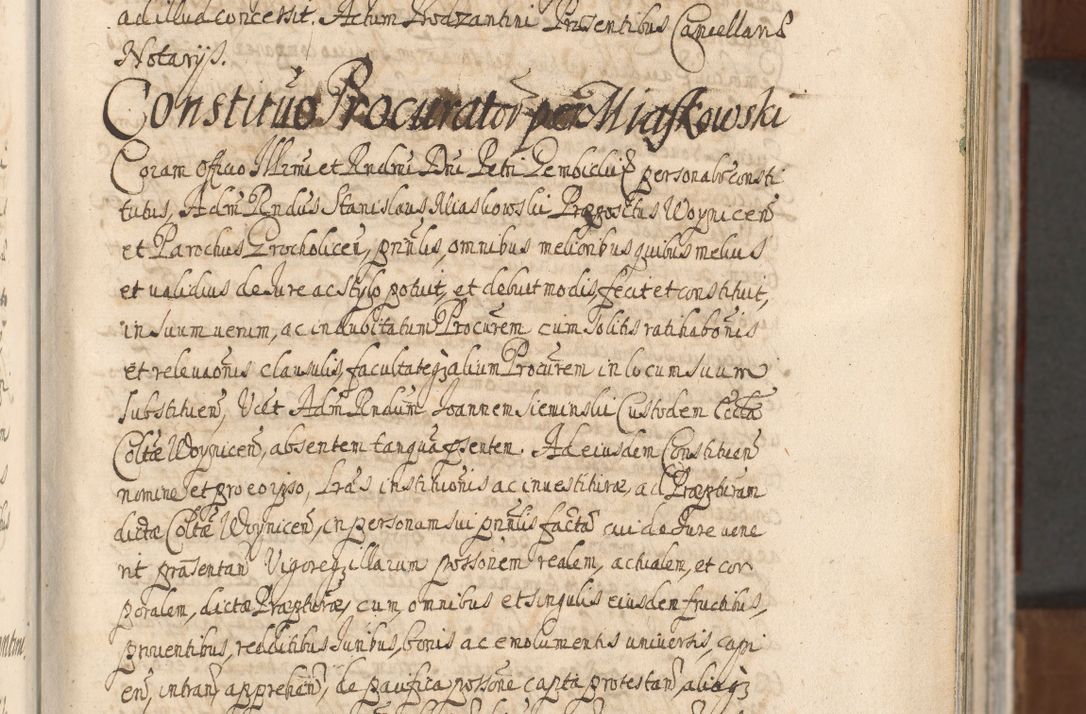 ad illud concessit. Actum Brodzantini Præsentibus Cancellariæ
Notarijs.
Constitutio Procurator̃ per Miaskowski
Coram Officio Illr̃mi et Rndmi Dni Petri Gembicki personaltr consti
tutus, Adm̃ Rndus Stanislaus Miaskowski Præpositus Woynicen̄
et Parochus Grocholicen̄, pñnlis, omnibus melioribus quibus melius
et validius de Jure ac Stylo potuit, et debuit modis, fecit et constituit,
in suum verum, ac indubitatum Procũrem cum solitis ratihabõnis
et relevaõnis clausulis, facultateqȝ alium Procũrem in locum suum
substituen̄, Vdlt Adm̃ Rndum Joannem Sieminski Custodem Ecclæ
Coltæ Woynicen̄, absentem tanquã pñsentem. Ad eiusdem Constituen̄
nomine et pro eo ipso, Lr̃as institiõnis ac investituræ, ad Præpturam
dictæ Coltæ Woynicen̄, in personam sui pñnlis factã cui de Jure vene
rit præsentan̄ Vigoreqȝ illarum possõnem realem, actualem, et cor
poralem, dictæ Præpturæ, cum omnibus et singulis eiusdem fructibus,
proventibus, redditibus Juribus, bonis ac emolumentis universis, capi
en̄, intran̄ apprehen̄, de pacifica possõne capta protestan̄ aliaqȝ